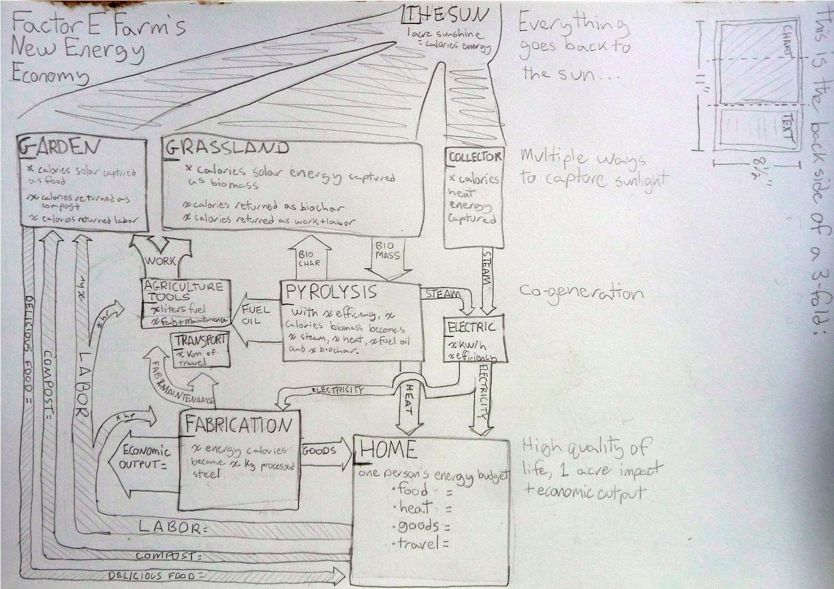 Factor E Farm's
New Energy
Economy
THE SUN
1 acre sunshine
= calories energy
Everything
goes back to
the sun...
This is the back side of a 3-fold:
CHART
TEXT
11"
8½"
GARDEN
x calories solar captured
as food
x calories returned as
compost
x calories returned labor
GRASSLAND
x calories solar energy captured
as biomass
x calories returned as biochar
x calories returned as work + labor
COLLECTOR
x calories
heat
energy
captured
Multiple ways
to capture sunlight
WORK
BIO
CHAR
BIO
MASS
STEAM
AGRICULTURE
TOOLS
x liters fuel
x Fab + Maintenance
FUEL
OIL
PYROLYSIS
with x efficiency, x
calories biomass becomes
x steam, x heat, x fuel oil
and x biochar.
STEAM
co-generation
ELECTRIC
x kw/h
x efficiency
TRANSPORT
x km of
travel
FAB & MAINTENANCE
ELECTRICITY
HEAT
ELECTRICITY
DELICIOUS FOOD=
COMPOST=
LABOR
x hr
x hr
FABRICATION
x energy calories
become x kg processed
steel
ECONOMIC
OUTPUT=
GOODS
HOME
one person's energy budget
• food =
• heat =
• goods =
• travel =
High quality of
life, 1 acre impact
+ economic output
LABOR=
COMPOST=
DELICIOUS FOOD=